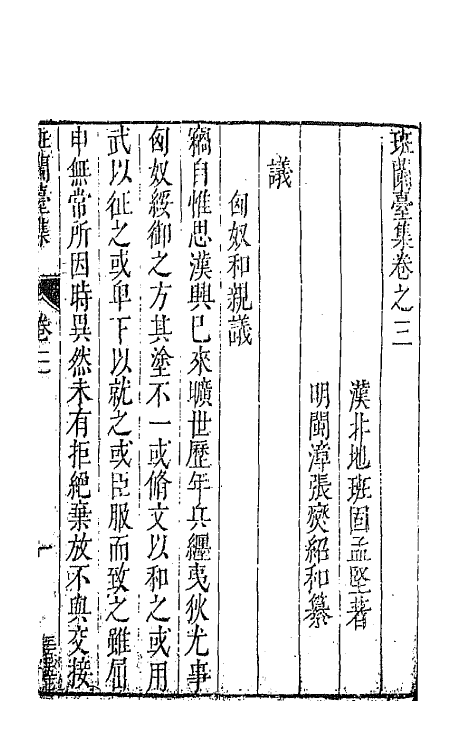 班蘭臺集卷之三
漢北地班固孟堅著
明閩漳張燮紹和纂
議
匈奴和親議
竊自惟思漢興已來曠世歷年兵纏夷狄尤事
匈奴綏御之方其塗不一或脩文以和之或用
武以征之或卑下以就之或臣服而致之雖屈
申無常所因時異然未有拒絕棄放不與交接
班蘭臺集
卷三
一